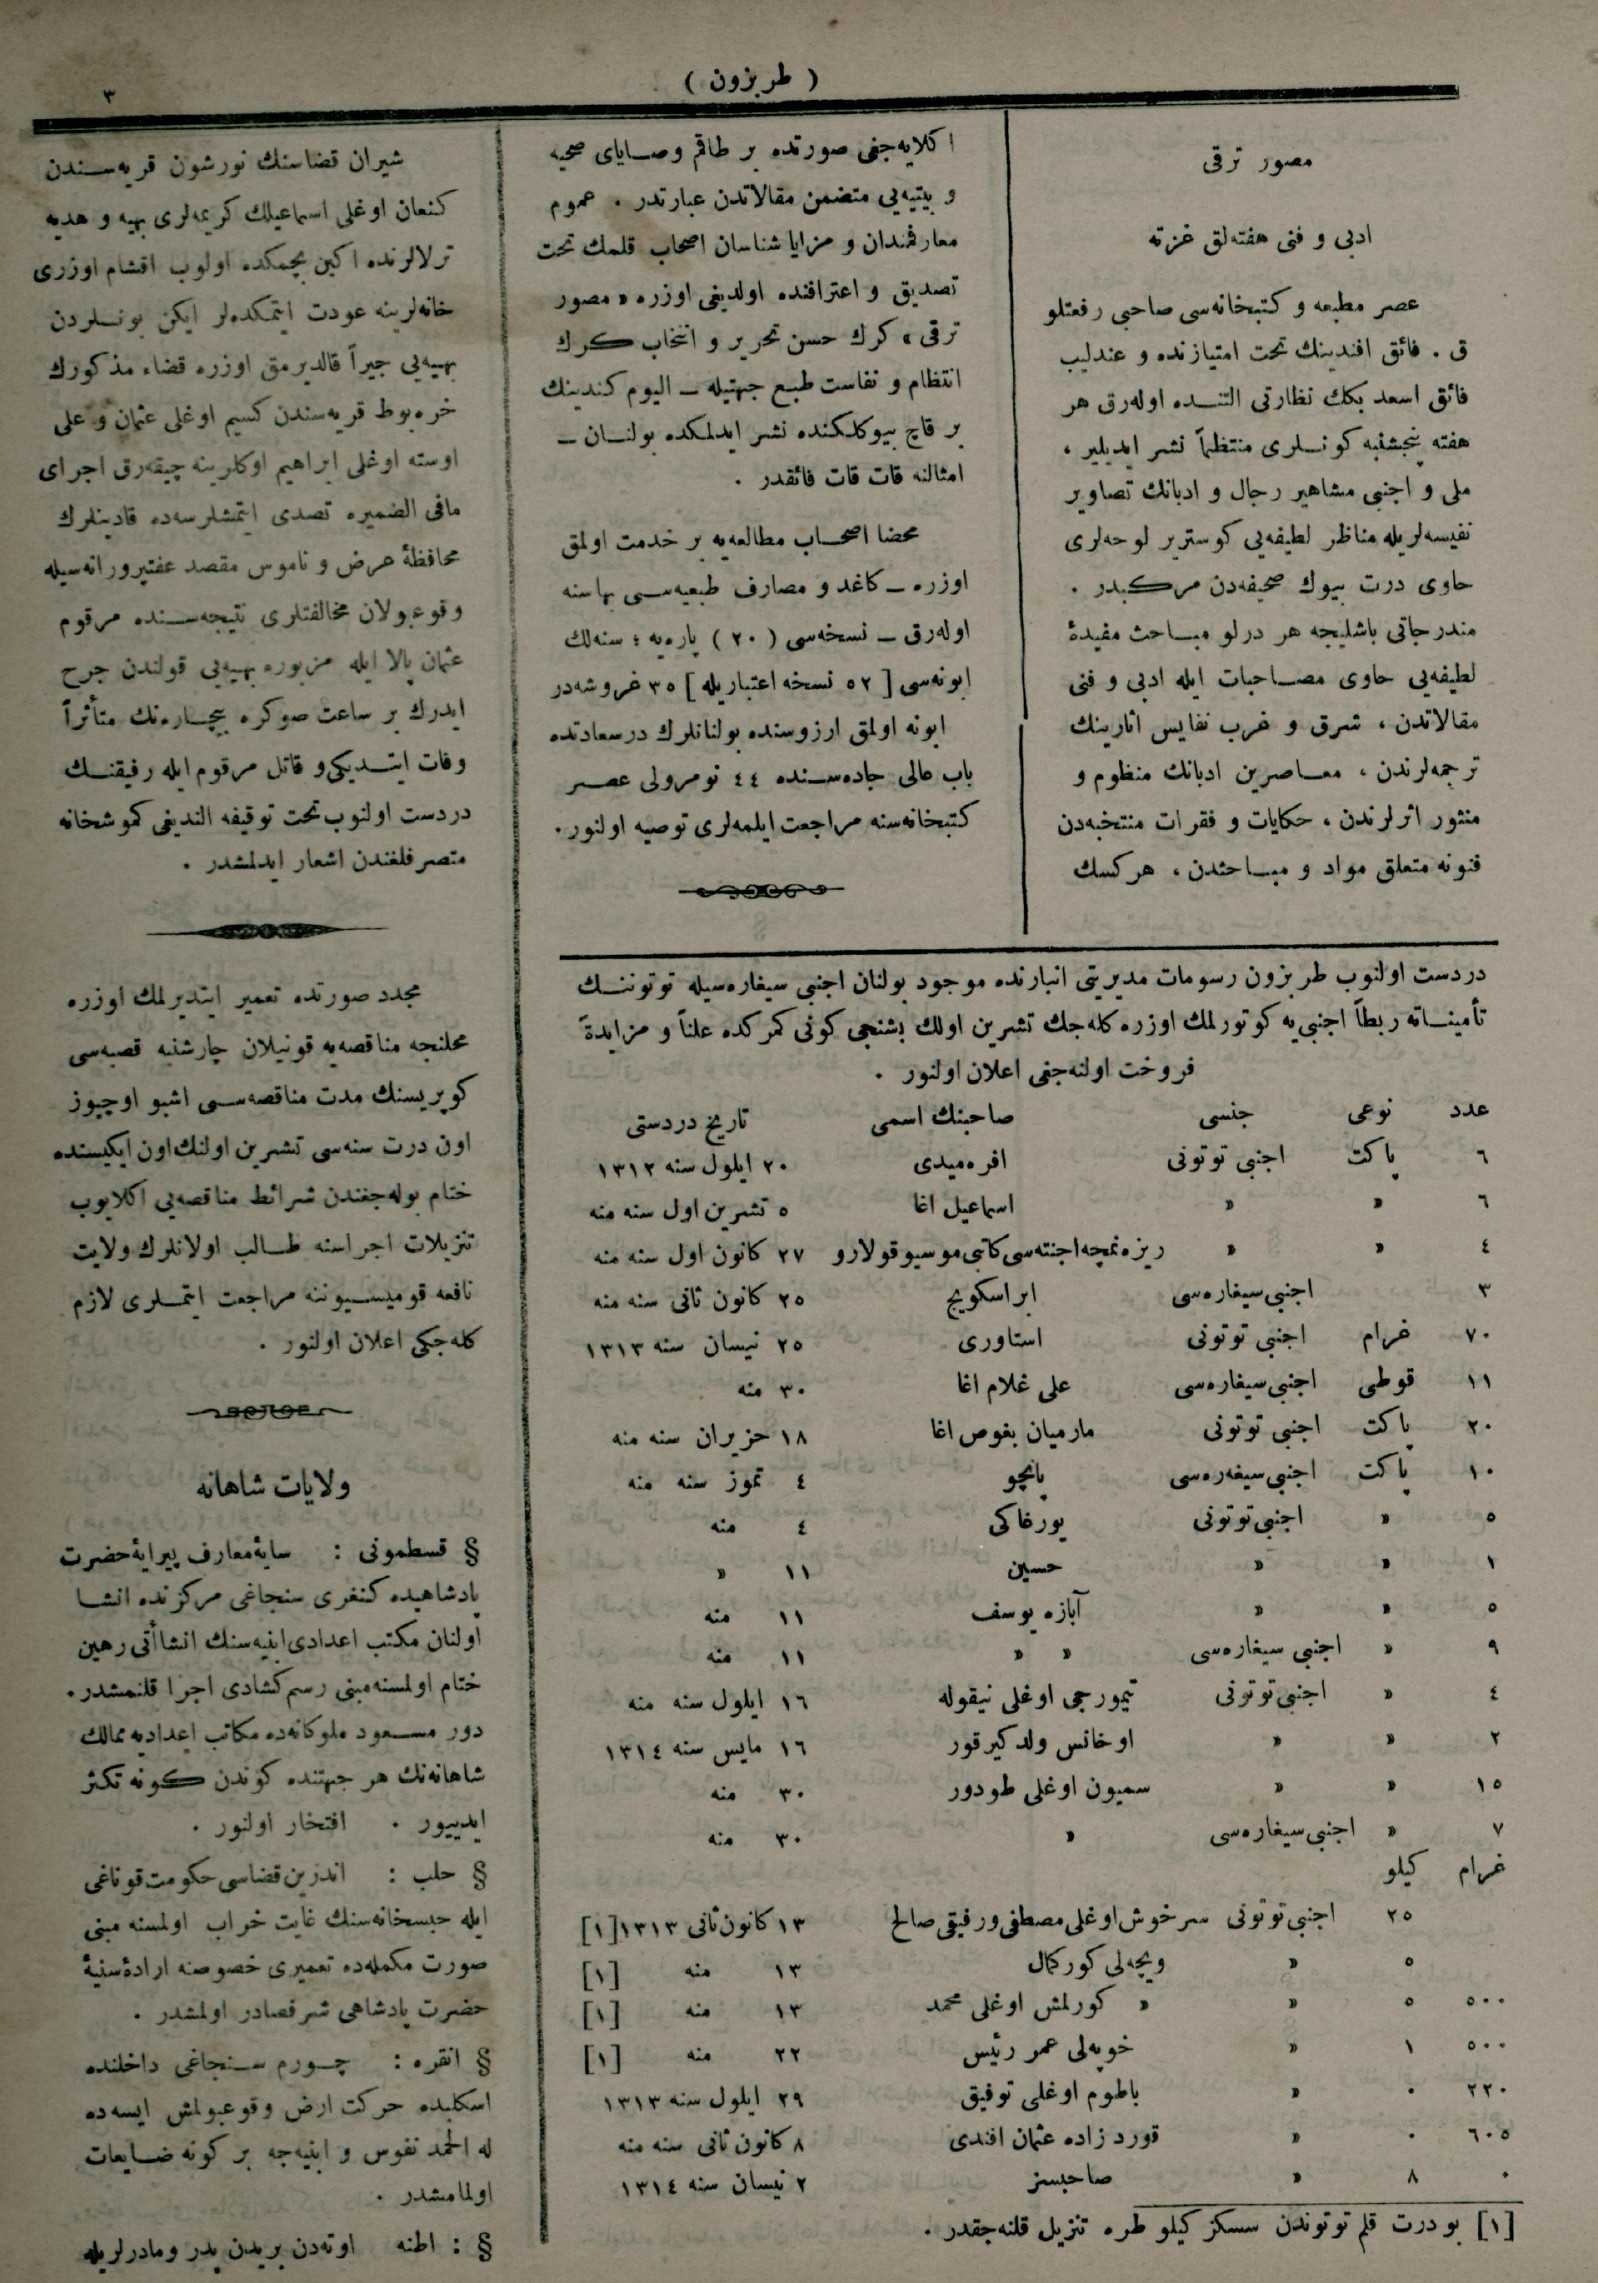 ( طربزون )
٣
مصور ترقی
ادبی و فنی هفته‌لق غزته
عصر مطبعه و کتبخانه‌سی صاحبی رفعتلو
ق . فائق افندینك تحت امتیازنده و عندلیب
فائق اسعد بكك نظارتی التنده اوله‌رق هر
هفته پنجشنبه كونلری منتظماً نشر ایدیلیر ،
ملی و اجنبی مشاهیر رجال و ادبانك تصاویر
نفیسه‌لریله مناظر لطیفه‌یی كوستریر لوحه‌لری
حاوی درت بیوك صحیفه‌دن مركبدر .
مندرجاتی باشلیجه هر درلو مباحث مفیدهٔ
لطیفه‌یی حاوی مصاحبات ایله ادبی و فنی
مقالاتدن ، شرق و غرب نفایس اثارینك
ترجمه‌لرندن ، معاصرین ادبانك منظوم و
منثور اثرلرندن ، حكایات و فقرات منتخبه‌دن
فنونه متعلق مواد و مباحثدن ، هركسك
اكلایه‌جغی صورتده بر طاقم وصایای صحیه
و بیتیه‌یی متضمن مقالاتدن عبارتدر . عموم
معارفمندان و مزایا شناسان اصحاب قلمك تحت
تصدیق و اعترافنده اولدیغی اوزره « مصور
ترقی » كرك حسن تحریر و انتخاب كرك
انتظام و نفاست طبع جهتیله ــ الیوم كندینك
بر قاچ بیوكلكنده نشر ایدلمكده بولنان ــ
امثالنه قات قات فائقدر .
محضا اصحاب مطالعه‌یه بر خدمت اولمق
اوزره ــ كاغد و مصارف طبعیه‌سی بهاسنه
اوله‌رق ــ نسخه‌سی ( ٢٠ ) پاره‌یه ؛ سنه‌لك
ابونه‌سی [ ٥٢ نسخه اعتباریله ] ٣٥ غروشه‌در
ابونه اولمق ارزوسنده بولنانلرك درسعادتده
باب عالی جاده‌سنده ٤٤ نومرولی عصر
كتبخانه‌سنه مراجعت ایلمه‌لری توصیه اولنور .
دردست اولنوب طربزون رسومات مدیریتی انبارنده موجود بولنان اجنبی سیغاره‌سیله توتوننك
تأمیناته ربطاً اجنبی‌یه كوتورلمك اوزره كله‌جك تشرین اولك بشنجی كونی كمركده علناً و مزایدةً
فروخت اولنه‌جغی اعلان اولنور .
عدد نوعی جنسی صاحبنك اسمی تاریخ دردستی
٦ پاكت اجنبی توتونی افره‌میدی ٢٠ ایلول سنه ١٣١٢
٦ » » اسماعیل اغا ٥ تشرین اول سنه منه
٤ » » ریزه نمچه اجنته‌سی كاتبی موسیو قولارو ٢٧ كانون اول سنه منه
٣ اجنبی سیغاره‌سی ابراسكویج ٢٥ كانون ثانی سنه منه
٧٠ غرام اجنبی توتونی استاوری ٢٥ نیسان سنه ١٣١٣
١١ قوطی اجنبی سیغاره‌سی علی غلام اغا ٣٠ منه
٢٠ پاكت اجنبی توتونی مارمیان بغوص اغا ١٨ حزیران سنه منه
١٠ پاكت اجنبی سیغره‌سی پانچو ٤ تموز سنه منه
٥ » اجنبی توتونی یورغاكی ٤ منه
١ » » حسین ١١ »
٥ » » آبازه یوسف ١١ منه
٩ » اجنبی سیغاره‌سی » » ١١ منه
٤ » اجنبی توتونی تیمورجی اوغلی نیقوله ١٦ ایلول سنه منه
٢ » » اوخانس ولد كیرقور ١٦ مایس سنه ١٣١٤
١٥ » » سمیون اوغلی طودور ٣٠ منه
٧ » اجنبی سیغاره‌سی » ٣٠ منه
غرام كیلو
٢٥ اجنبی توتونی سرخوش اوغلی مصطفی ورفیقی صالح ١٣ كانون ثانی ١٣١٣ [١]
٥ » ویچه‌لی كوركمال ١٣ منه [١]
٥٠٠ ٥ » » كورلمش اوغلی محمد ١٣ منه [١]
٥٠٠ ١ » خوپه‌لی عمر رئیس ٢٢ منه [١]
٢٢٠ ٠ » باطوم اوغلی توفیق ٢٩ ایلول سنه ١٣١٣
٦٠٥ ٠ » قورد زاده عثمان افندی ٨ كانون ثانی سنه منه
٠ ٨ » صاحبسز ٢ نیسان سنه ١٣١٤
[١] بو درت قلم توتوندن سكز كیلو طره تنزیل قلنه‌جقدر .
شیران قضاسنك نورشون قریه‌سندن
كنعان اوغلی اسماعیلك كریمه‌لری بهیه و هدیه
ترلالرنده اكین بچمكده اولوب اقشام اوزری
خانه‌لرینه عودت ایتمكده‌لر ایكن بونلردن
بهیه‌یی جبراً قالدیرمق اوزره قضاء مذكورك
خره‌بوط قریه‌سندن كسیم اوغلی عثمان و علی
اوسته اوغلی ابراهیم اوكلرینه چیقه‌رق اجرای
مافی الضمیره تصدی ایتمشلرسه‌ده قادینلرك
محافظهٔ عرض و ناموس مقصد عفتپرورانه‌سیله
وقوعبولان مخالفتلری نتیجه‌سنده مرقوم
عثمان پالا ایله مزبوره بهیه‌یی قولندن جرح
ایدرك بر ساعت صوكره بیچاره‌نك متأثراً
وفات ایتدیكی و قاتل مرقوم ایله رفیقنك
دردست اولنوب تحت توقیفه الندیغی كموشخانه
متصرفلغندن اشعار ایدلمشدر .
مجدد صورتده تعمیر ایتدیرلمك اوزره
محلنجه مناقصه‌یه قونیلان چارشنبه قصبه‌سی
كوپریسنك مدت مناقصه‌سی اشبو اوچیوز
اون درت سنه‌سی تشرین اولنك اون ایكیسنده
ختام بوله‌جغندن شرائط مناقصه‌یی اكلایوب
تنزیلات اجراسنه طالب اولانلرك ولایت
نافعه قومیسیوننه مراجعت ایتملری لازم
كله‌جكی اعلان اولنور .
ولایات شاهانه
§ قسطمونی : سایهٔ معارف پیرایهٔ حضرت
پادشاهیده كنغری سنجاغی مركزنده انشا
اولنان مكتب اعدادی ابنیه‌سنك انشاأتی رهین
ختام اولمسنه مبنی رسم كشادی اجرا قلنمشدر .
دور مسعود ملوكانه‌ده مكاتب اعدادیه ممالك
شاهانه‌نك هر جهتنده كوندن كونه تكثر
ایدییور . افتخار اولنور .
§ حلب : اندرین قضاسی حكومت قوناغی
ایله حبسخانه‌سنك غایت خراب اولمسنه مبنی
صورت مكمله‌ده تعمیری خصوصنه ارادهٔ سنیهٔ
حضرت پادشاهی شرفصادر اولمشدر .
§ انقره : چورم سنجاغی داخلنده
اسكلیبده حركت ارض وقوعبولمش ایسه‌ده
له الحمد نفوس و ابنیه‌جه بر كونه ضایعات
اولمامشدر .
§ : اطنه اوته‌دن بریدن پدر و مادرلریله